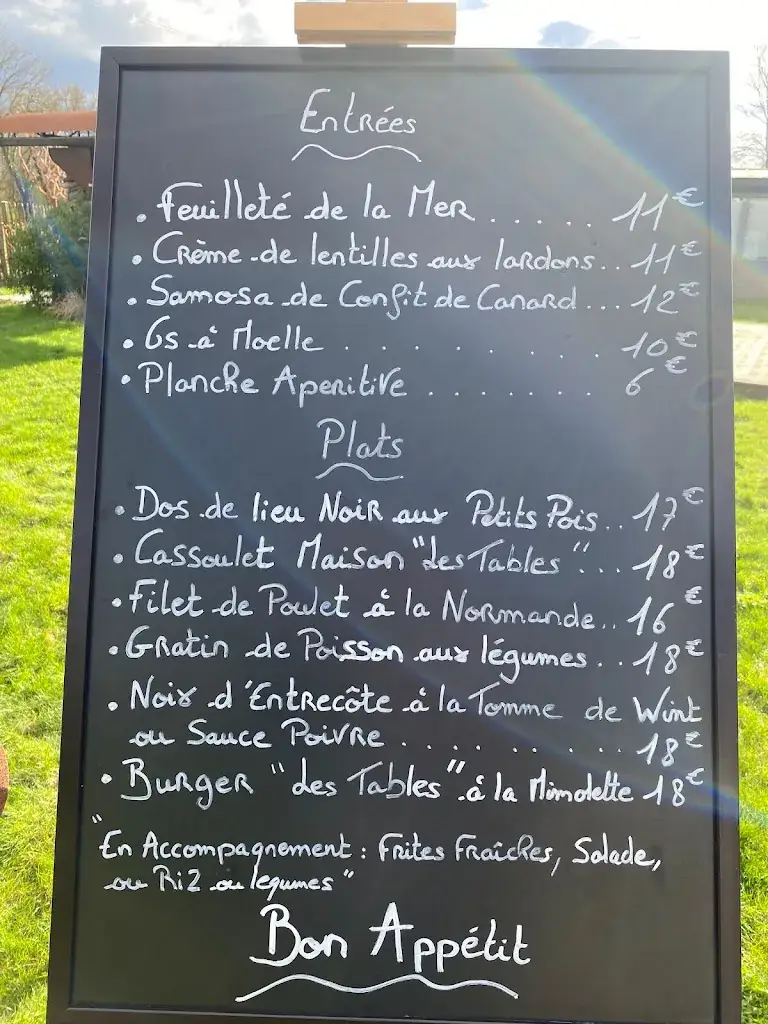 Entrées
. Feuilleté de la Mer ..... 11€
. Crème de lentilles aux lardons.. 11€
. Samosa de Confit de Canard... 12€
. Os à Moelle . . . . . . 10€
. Planche Aperitive ....... 6€
Plats
. Dos de lieu Noir aux Petits Pois.. 17€
. Cassoulet Maison "des Tables"... 18€
. Filet de Poulet à la Normande.. 16€
. Gratin de Poisson aux légumes.. 18€
. Noix d'Entrecôte à la Tomme de Wint
ou Sauce Poivre ......... 18€
. Burger "des Tables" à la Mimolette 18€
"En Accompagnement : Frites Fraîches, Salade,
ou Riz ou légumes"
Bon Appétit